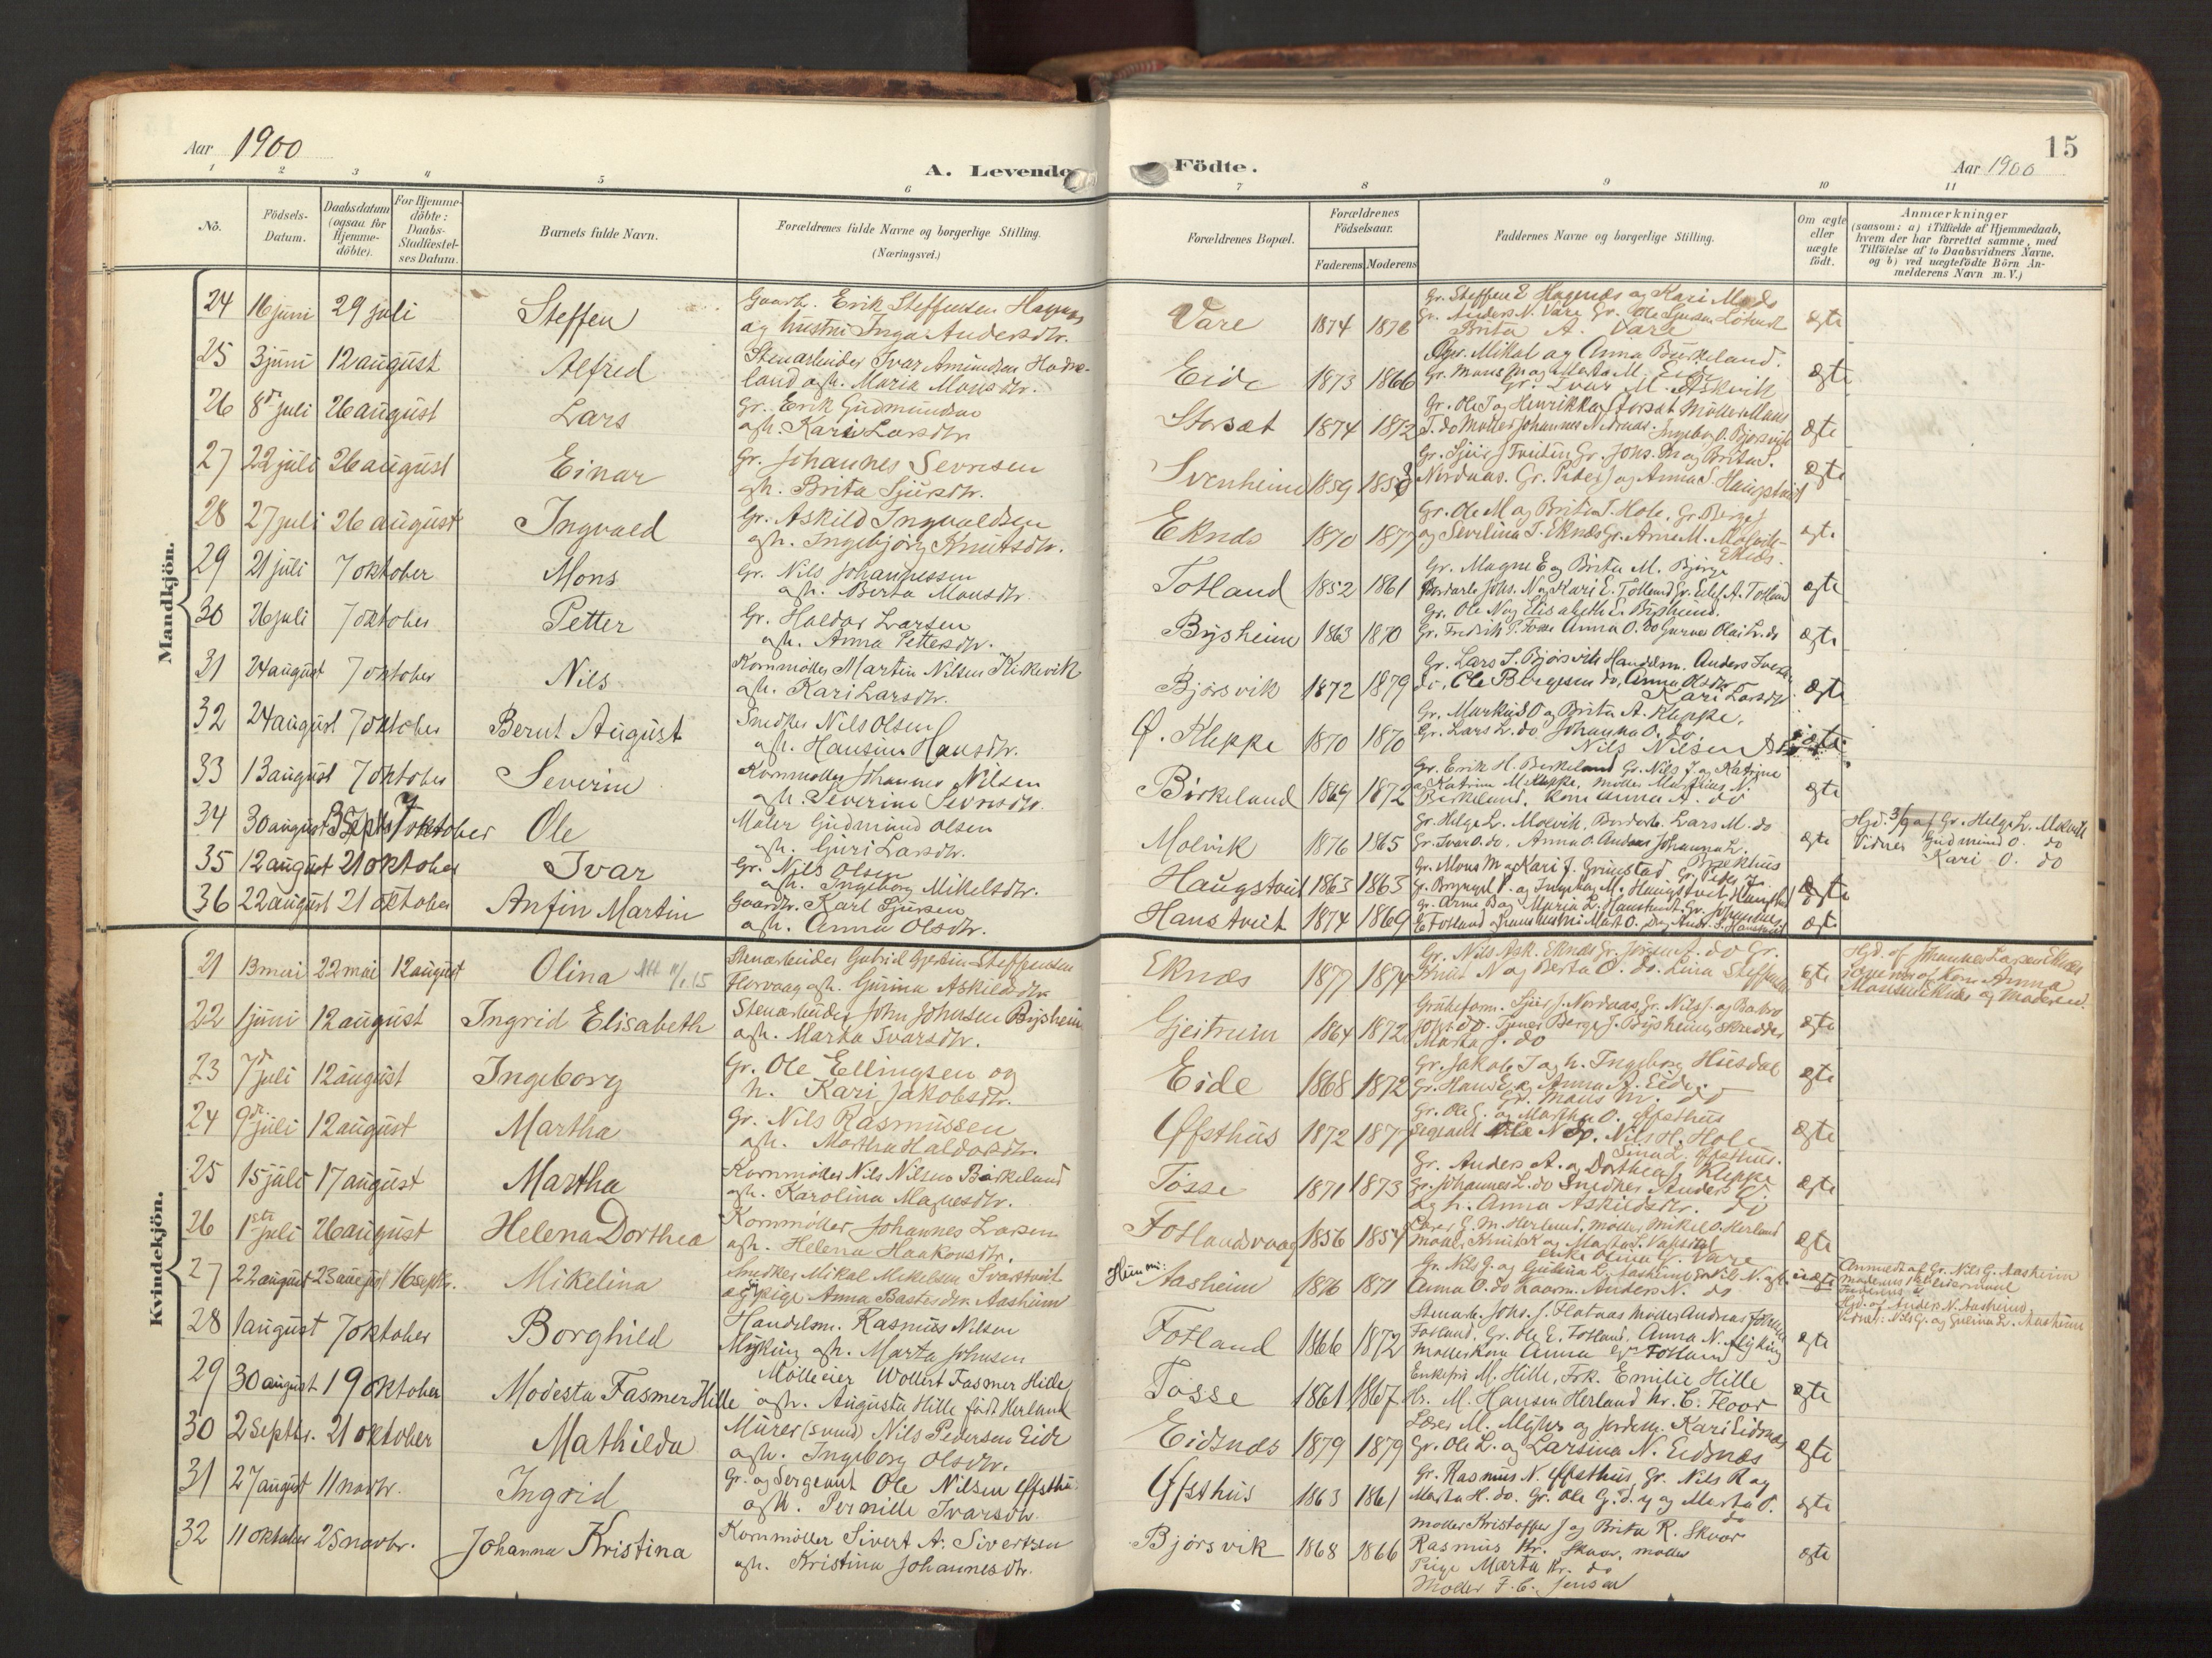 Aar 1900
A. Levende Födte.
Aar 1900
15
1 2 3 4 5 6 7 8 9 10 11
No.
Födsels-Datum.
Daabsdatum (ogsaa for Hjemme-döbte).
For Hjemme-döbte: Daabs-Stadfæstel-ses Datum.
Barnets fulde Navn.
Forældrenes fulde Navne og borgerlige Stilling. (Næringsvei.)
Forældrenes Bopæl.
Forældrenes Födselsaar.
Faderens Moderens
Faddernes Navne og borgerlige Stilling.
Om ægte eller uægte födt.
Anmærkninger
(saasom: a) i Tilfælde af Hjemmedaab, hvem der har forrettet samme, med Tilföielse af to Daabsvidners Navne. og b) ved uægtefödte Börn An-melderens Navn m. V.)
Mandkjön.
24 16 juni 29 juli Steffen Gaarbr. Erik Steffensen
og hustru Inga Andersdtr. Vare 1874 1876 Gr. Steffen E Hagenæs og Kari
Gr. Anders N. Vare Gr. Ole
Brita A. Vare ægte
25 3 juni 12 august Alfred Stenarbeider Ivar Amundsen Hodne-
land ogh. Maria Monsdtr. Eide 1873 1866 Mikal og Anna Birkeland.
Gr. Mons M og Marta M. Eide
Gr. Ivar M. Askvik ægte
26 8de juli 26 august Lars Gr. Erik Gudmundsen
ogh. Kari Larsdtr. Storsæt 1874 1872 Gr. Ole T og Henrikka Storsæt Møller Mons
T. do Møller Johannes N. Ingebog O. Bjorsvik ægte
27 22 juli 26 august Einar Gr. Johannes Sevrensen
ogh. Brita Sjursdtr. Svenheim 1859 1858 Gr. Sjur J Tveiten Gr. Johs. M og Brita S.
Nordnas. Gr. Peder J og Anna S. Haugstvet ægte
28 27 juli 26 august Ingvald Gr. Askild Ingvaldsen
ogh. Ingebjørg Knutsdtr. Eknæs 1870 1877 Gr. Ole M og Brita I. Hole. Gr. Berge J
og Sevelina T. Eknæs Gr. Arne M. Molvik-
Eknæs. ægte
29 21 juli 7 oktober Mons Gr. Nils Johannessen
ogh. Berta Monsdtr. Totland 1852 1861 Gr. Magne E og Brita M. Bjørge
Johs. N og Kari E. Totland Gr. Eilif A. Totland ægte
30 26 juli 7 oktober Petter Gr. Haldor Larsen
ogh. Anna Pettersdtr. Bysheim 1863 1870 Gr. Ole N og Elisabeth E. Bysheim.
Gr. Fredrik P. Fosse Anna O. do Olai L. do ægte
31 24 august 7 oktober Nils Kornmøller Martin Nilsen Kikevik
ogh. Kari Larsdtr. Bjørsvik 1872 1879 Gr. Lars I. Bjørsvik Handelsm. Anders
do, Ole B Ørgesen do, Anna Olsdtr
Kari Larsdtr ægte
32 24 august 7 oktober Bernt August Snedker Nils Olsen
ogh. Hansine Hansdtr. Ø. Kleppe 1870 1870 Gr. Markus O og Brita A. Kleppe.
Gr. Lars L. do Johanna O. do.
Nils Nilsen ægte
33 13 august 7 oktober Severin Kornmøller Johannes Nilsen
ogh. Severine Sevresdtr. Birkeland 1869 1872 Gr. Erik H. Birkeland Gr. Nils J. og Katrine
og Katrine M. Kleppe, Møller Martinus N.
Birkeland. Kone Anna A. do ægte
34 30 august 3 Septbr 7 oktober Ole Maler Gudmund Olsen
ogh. Guri Larsdtr. Molvik 1876 1865 Gr. Helge L. Molvik, Lars M. do
Gr. Ivar O. do, Anna O. Johanna L.
Brækhus ægte Hjd. 3/9 af Gr. Helge L. Molvik
Vidner Gudmund O. do
Kari O. do
35 12 august 21 oktober Ivar Gr. Nils Olsen
ogh. Ingeborg Mikelsdtr. Haugstveit 1863 1863 Gr. Mons M og Kari J. Grimstad Gr. Peder J
Gr. Brynjel P. og Ingebor M. Haugstveit ægte
36 22 august 21 oktober Anfin Martin Gaardbr. Karl Sjursen
ogh. Anna Olsdtr. Hanstveit 1874 1869 Gr. Arne B og Maria L. Hanstveit Gr. Johannes
E. Totland ægt
Kvindekjön.
21 13 mai 22 mai 12 august Olina Att 11/1 15 Stenarbeider Gabriel Gjertin Steffensen
Florvaag ogh. Gurina Askildsdtr. Eknæs 1877 1874 Gr. Nils Ask. Eknæs Gr. Jørgen A. do Gr.
Knut N og Berta O. do. Lina Steffensen ægte Hjd. af Johannes Larsen Eknæs
af Kone Anna
Monsen Eknæs og Moderen.
22 1 juni 12 august Ingrid Elisabeth Stenarbeider John Johnsen Bysheim
ogh. Marta Ivarsdtr. Gjeitrein 1864 1872 Grubeform. Sjur J. Nordnaas, Gr. Nils J. og Barbro
J. do. Berge J. Bysheim, Skredder
Marta J. do ægte
23 7de juli 12 august Ingeborg Gr. Ole Ellingsen og
h. Kari Jakobsdtr. Eide 1868 1872 Gr. Jakob I og h. Ingeborg Husdal
Gr. Hans E. og Anna A. Eide.
Gr. Mons M. do ægte
24 9de juli 12 august Martha Gr. Nils Rasmussen
ogh. Martha Haldorsdtr. Yfsthus 1872 1877 Gr. Ole G. og Martha O. Yfsthus
Sergeant Ole N do. Nils H. Hole
Yfsthus. ægte
25 15 juli 17 august Martha Kornmøller Nils Nilsen Birkeland
ogh. Karolina Magnesdtr. Tosse 1871 1873 Gr. Anders A. og Dorthea J. Kleppe
Gr. Johannes L. do Snedker Anders O.
og h. Anna Askildsdtr. do ægte
26 1ste juli 26 august Helena Dorthea Kornmøller Johannes Larsen
ogh. Helena Haakonsdtr. Fotlandsvaag 1856 1854 Lærer G. M. Herland, Møller Mikel O. Herland
Møller Knut K og Marta
enke Olina G. Vare ægte
27 22 august 23 august 16 septbr. Mikelina Snedker Mikal Mikelsen Svartveit
og pige Anna Bastesdtr. Aasheim Hun: Aasheim 1876 1871 Gr. Nils G. og Gulina L. Aasheim Gr. Nils N.
Anna O. do Anders N. do uægte Anmeldt af Gr. Nils G. Aasheim
Moderens
Faderens
Hjd. af Anders N. Aasheim
Vidner: Nils G. og Gulina L. Aasheim
28 1 august 7 oktober Borghild Handelsm. Rasmus Nilsen
Myking ogh. Marta Johnsen Fotland 1866 1872 Stenarb. Johs. J. Flatnaas Møller Andreas
Fotland, Gr. Ole E. Fotland, Anna N. Myking
Møllerkone Anna Fotland ægte
29 30 august 19 oktober Modesta Fasmer Hille Mølleeier Wollert Fasmer Hille
ogh. Augusta Hille født Herland Tosse 1861 1867 Enkefru M. Hille, Frk. Emilie Hille
Hr. M. Hansen Herland Hr. C. Floor ægte
30 2 Septbr. 21 oktober Mathilda Murer (svend) Nils Pedersen Eide
ogh. Ingeborg Olsdtr. Eidsnæs 1879 1879 Lærer M. Myhr og Jordem. Kari Eidsnæs
Gr. Ole L. og Larsina N. Eidsnæs ægte
31 27 august 11 novbr. Ingrid Gr. og Sergeant Ole Nilsen Yfsthus
ogh. Pernille Ivarsdtr. Yfsthus 1863 1861 Gr. Rasmus N. Yfsthus, Gr. Nils R og
Marta H. do. Gr. Ole G. do og Marta O.
do ægte
32 11 oktober 25 novbr. Johanna Kristina Kornmøller Sivert A. Sivertsen
ogh. Kristina Johannesdtr. Bjørsvik 1868 1866 Møller Kristoffer J og Brita R. Skaar
Rasmus Kr. Skaar, Møller
Pige Marta Kr. do
Møller F. C. Jensen ægte